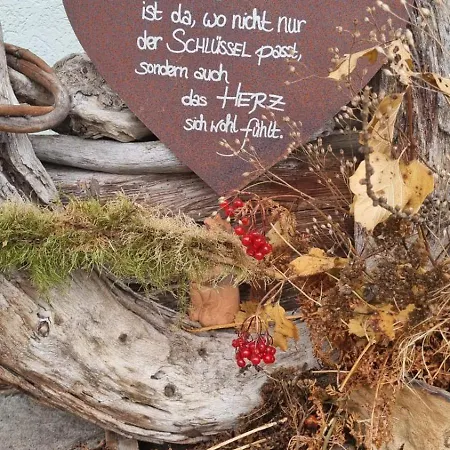 ist da, wo nicht nur
der SCHLÜSSEL passt,
sondern auch
das HERZ
sich wohl fühlt.